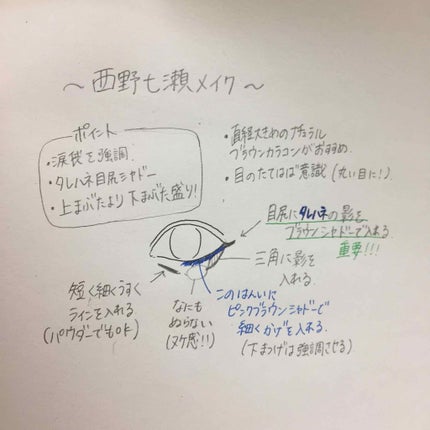 ～西野七瀬メイク～
ポイント
・涙袋を強調.
・タレハネ目尻シャドー
・上まぶたより下まぶた盛り!
・直径大きめのナチュラル
ブラウンカラコンがおすすめ.
・目のたてはば意識(丸い目に!)
目尻にタレハネの影を
ブラウンシャドーで入れる.
重要!!!
三角に影を
入れる.
短く細くうすく
ラインを入れる
(パウダーでもOK)
なにも
ぬらない
(ヌケ感!!)
このはんいに
ピンクブラウンシャドーで
細くかげを入れる.
(下まつげは強調させる)